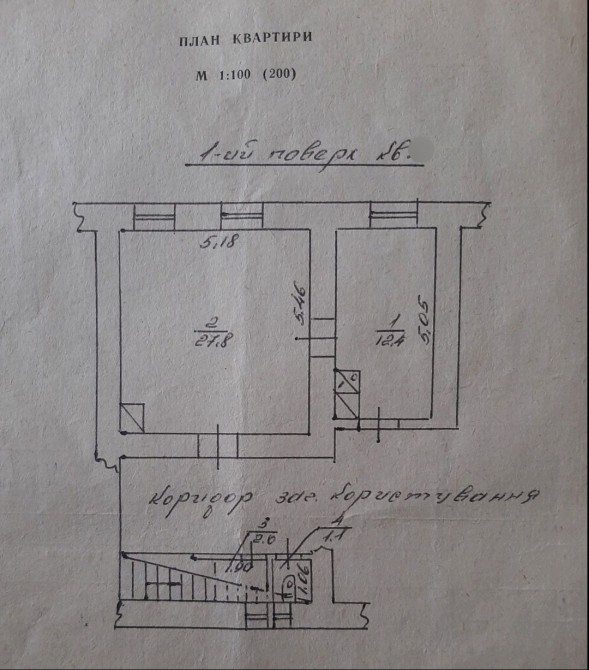 ПЛАН КВАРТИРИ
М 1:100 (200)
1-ий поверх кв.
5,18
5,46
2
27,8
1
12,4
5,05
Коридор заг. користування
3
2.6
4
1.1
1.90
1,06